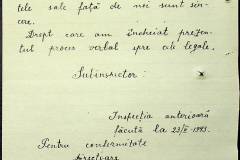 tele sale față de noi sunt sin-
cere.
Drept care am încheiat prezen-
tul proces verbal spre cele legale.
Subinspector:
Inspecția anterioară
făcută la 23/II 1943.
Pentru conformitate
Directoare